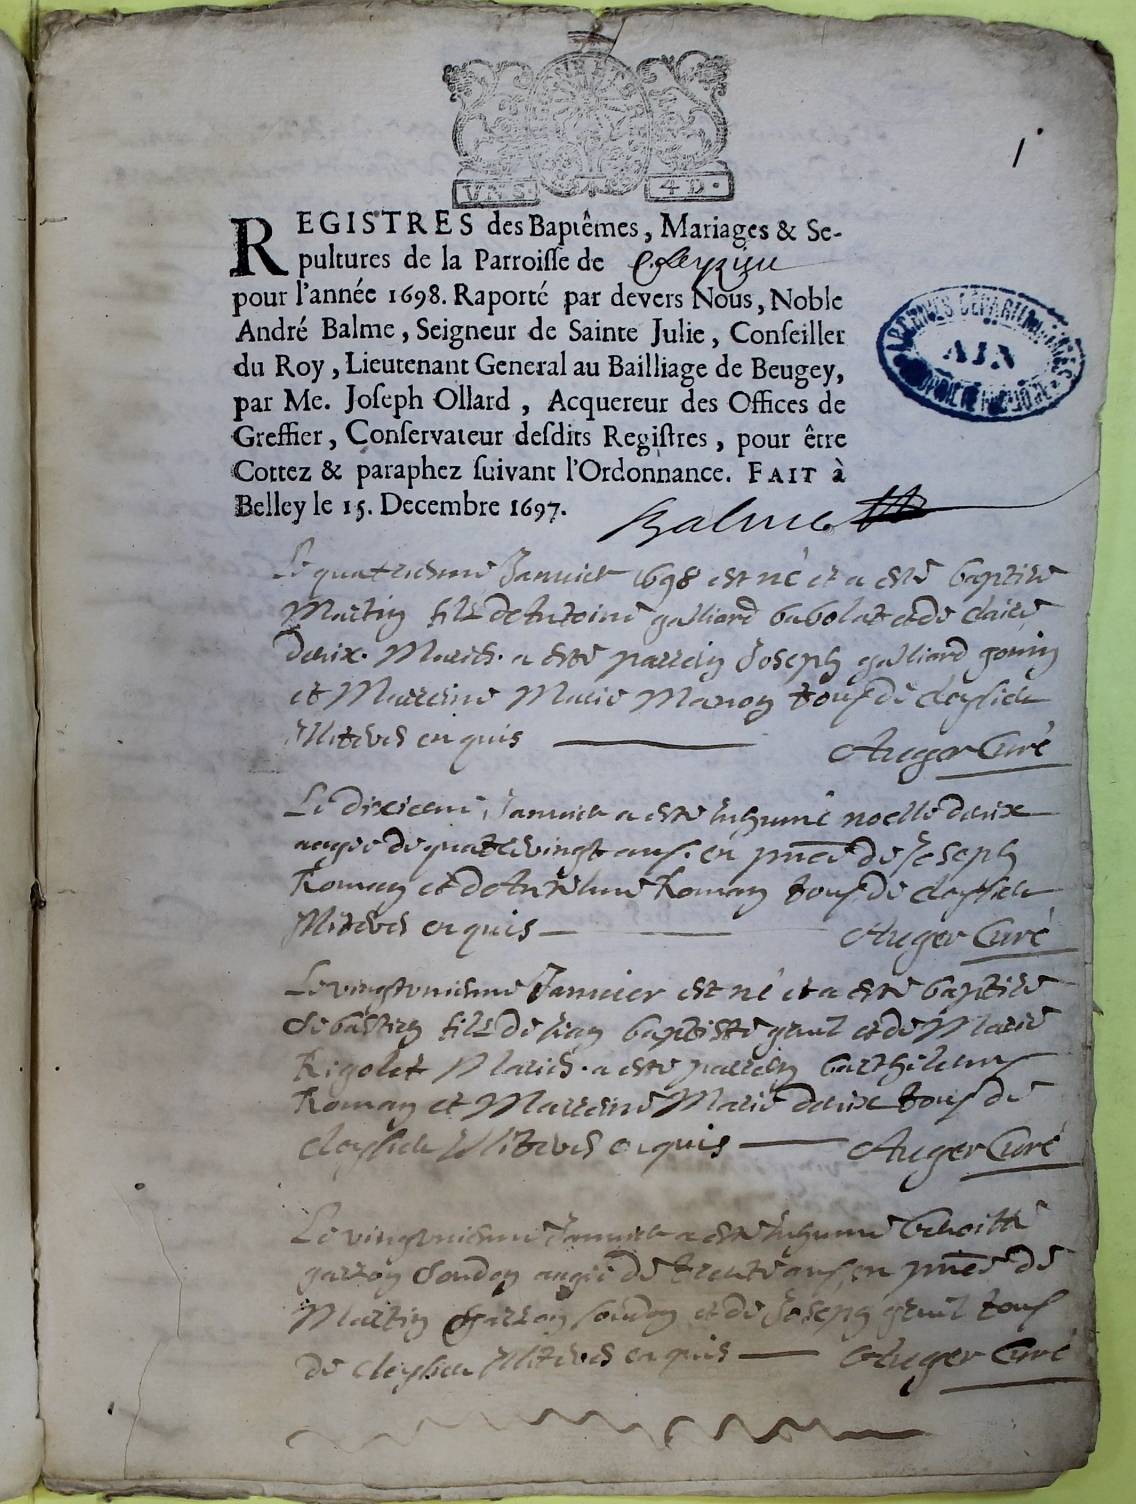 VNS. 4D.
1
REGISTRES des Baptêmes, Mariages & Se-
pultures de la Parroisse de Cleyzieu
pour l'année 1698. Raporté par devers Nous, Noble
André Balme, Seigneur de Sainte Julie, Conseiller
du Roy, Lieutenant General au Bailliage de Beugey,
par Me. Joseph Ollard, Acquereur des Offices de
Greffier, Conservateur desdits Registres, pour être
Cottez & paraphez suivant l'Ordonnance. FAIT à
Belley le 15. Decembre 1697.
Balme
ARCHIVES DEPARTEMENTALES
AIN
Le quatriesme Janvier 1698 est né et a esté baptisé
Martin fils de Antoine galliard babolat et de claire
daix. Mariés. a esté parrein Joseph galliard gonin
et Marreine Marie Manon tous de cleysieu
illiterés enquis Auger Curé
Le dixieme Janvier a esté inhumé noelle daix
aagée de quatrevingt ans. en pnce de Joseph
Roman et de Antelme Roman tous de cleysieu
illiterés enquis Auger Curé
Le vingtuniesme Janvier est né et a esté baptisé
Sebastien fils de Jean baptiste gruel et de Marie
Rigolet Mariés. a esté parrein barthelemy
Roman et Marreine Marie daix tous de
cleysieu illiterés enquis Auger Curé
Le vingtuniesme Janvier a esté inhumé benoitte
garron aagée de trente ans en pnce de
Martin garron et de Joseph gruel tous
de cleysieu illiterés enquis Auger Curé